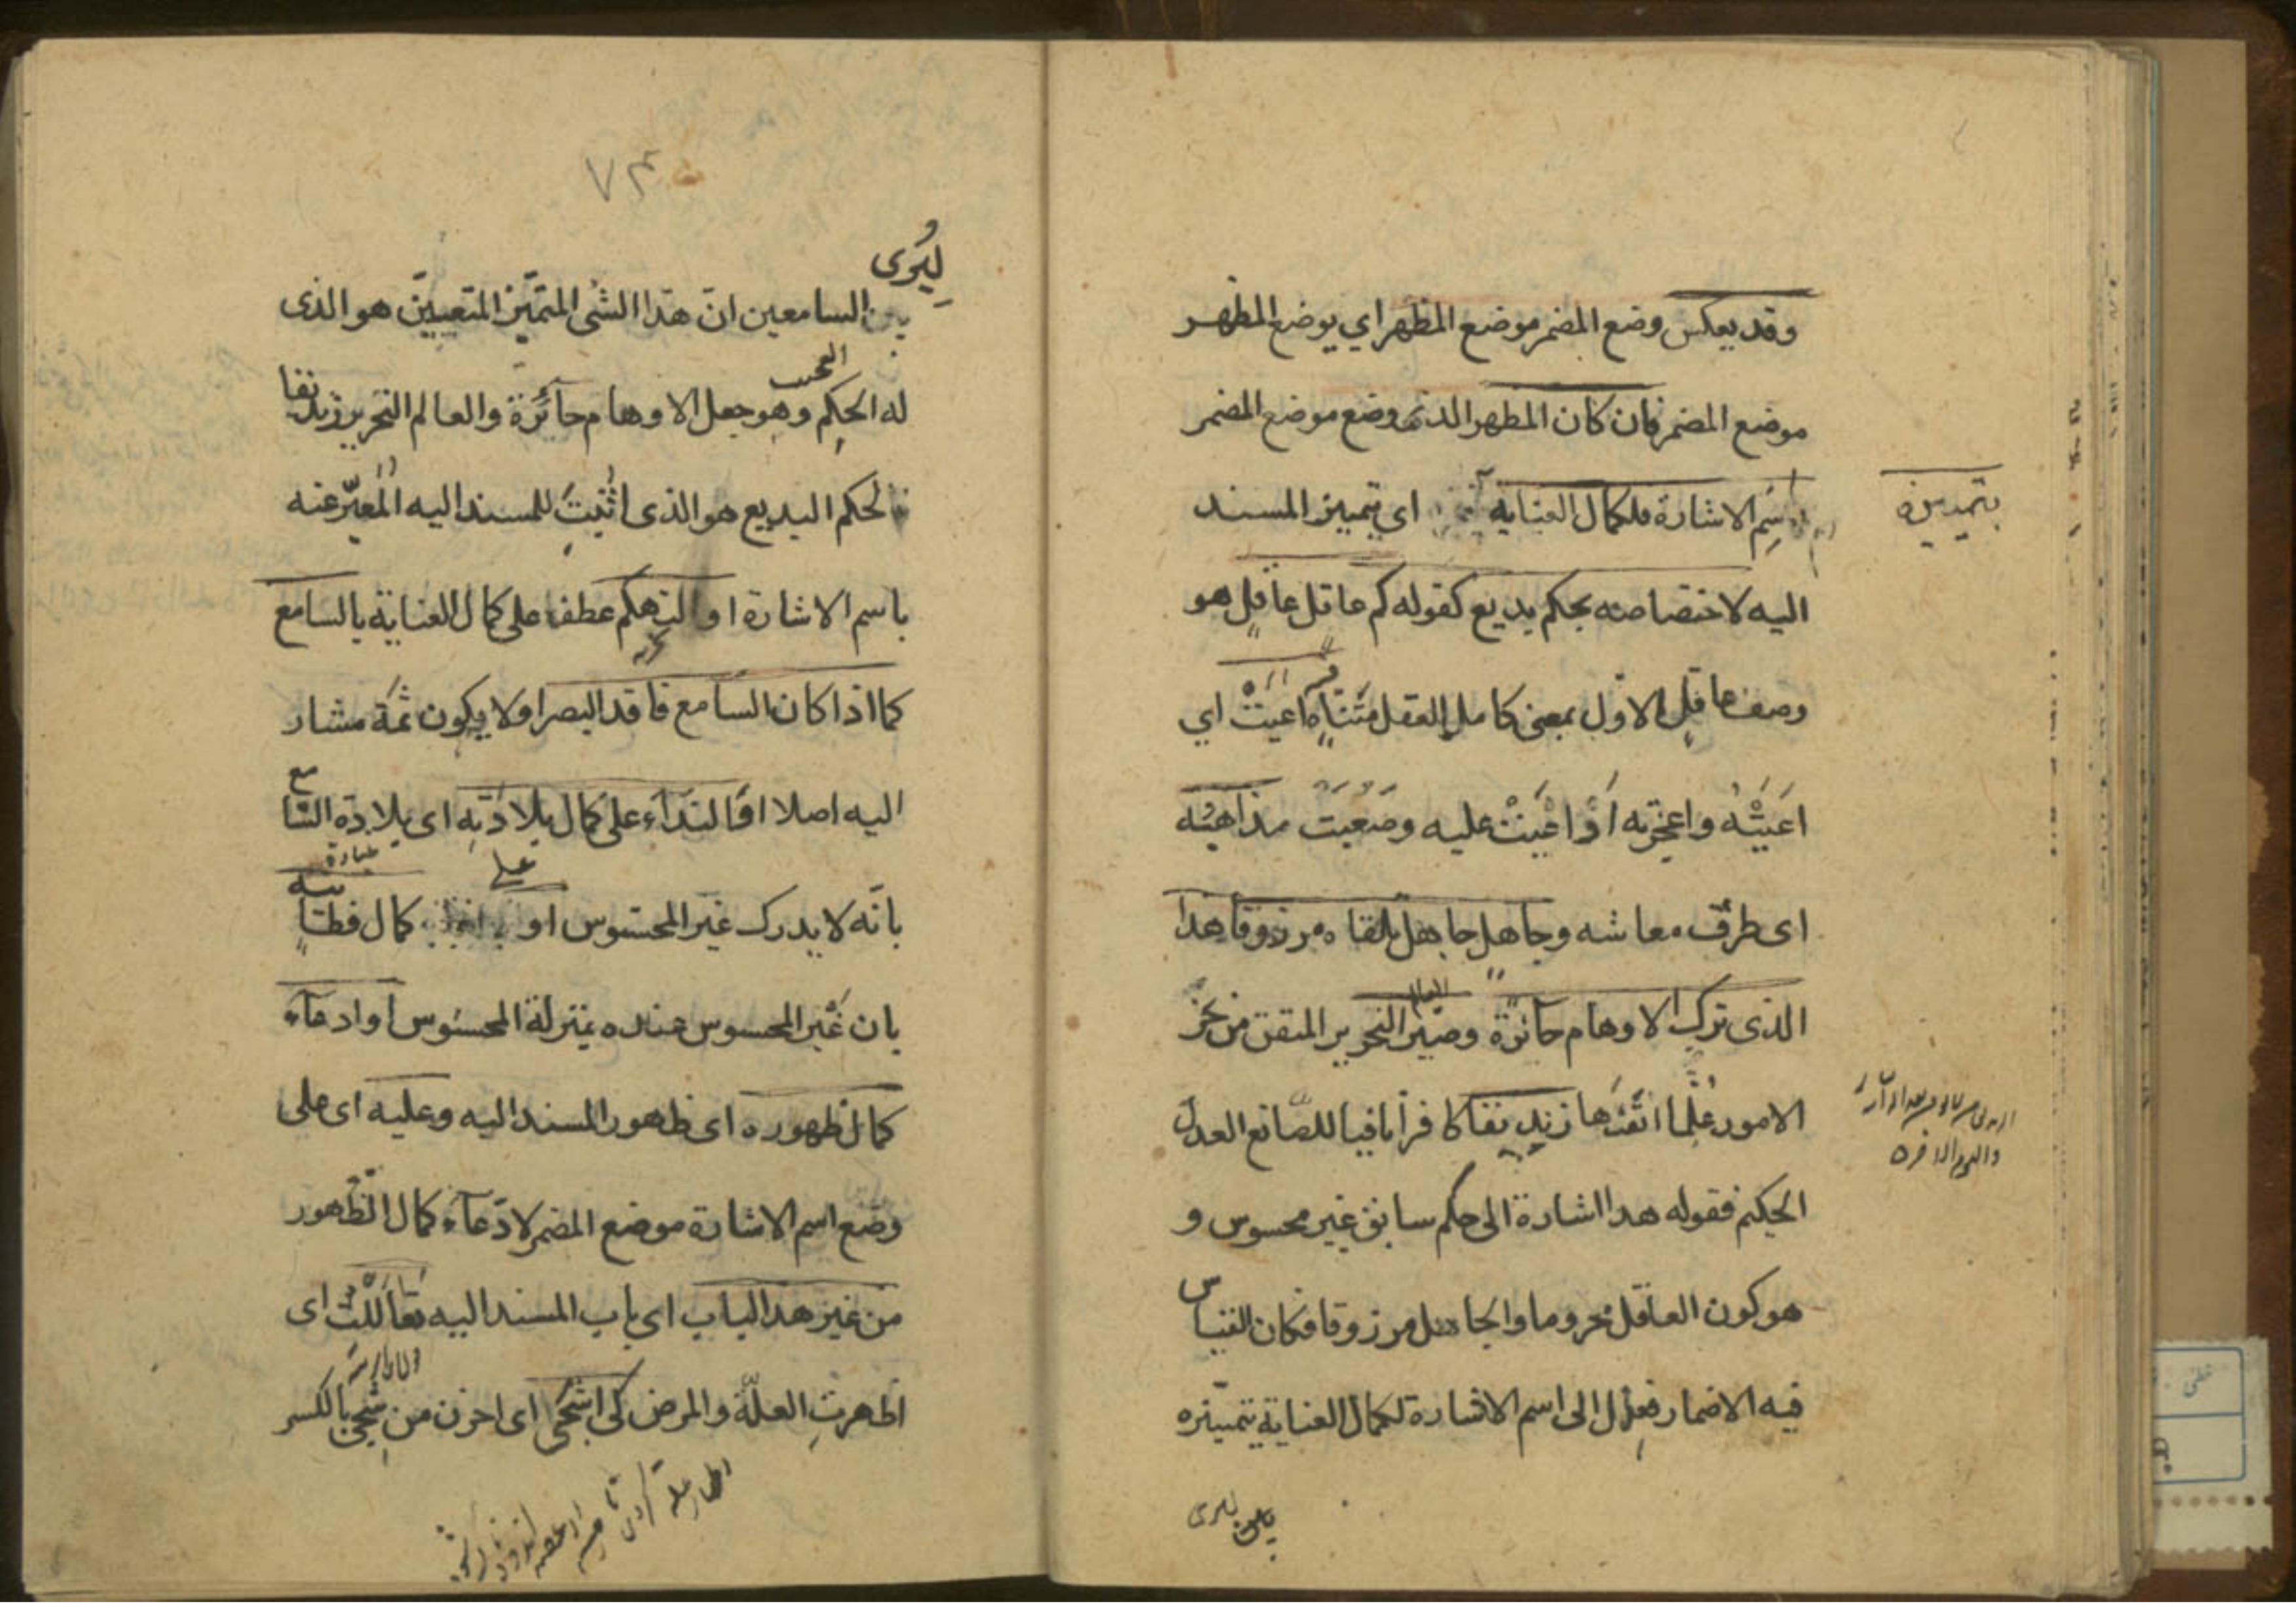 وقد يعكس وضع المضمر موضع المظهر اي يوضع المظهر
موضع المضمر فان كان المظهر الذى وضع موضع المضمر
اسم الاشارة فلكمال العناية اى بتمييز المسند
بتمييزه
اليه لاختصاصه بحكم بديع كقوله كم عاقل عاقل هو
وصف عاقل الاول بمعنى كامل العقل متناه اعيت اي
اعيته واعجزته او اعيت عليه وصعبت مذاهبه
اى طرق معاشه وجاهل جاهل تلقاه مرزوقا هذا
الذى ترك الاوهام حائرة وصير العالم النحرير المتقن من نحر
الامور علما اتقنها زنديقا كافرا نافيا للصانع العدل
الحكيم فقوله هذا اشارة الى حكم سابق غير محسوس و
هو كون العاقل محروما والجاهل مرزوقا فكان القياس
فيه الاضمار فعدل الى اسم الاشارة لكمال العناية بتمييزه
ليرى
٧٣
ليرى
السامعين ان هذا الشئ المتميز المتعين هو الذى
له الحكم العجيب وهو جعل الاوهام حائرة والعالم النحرير زنديقا
فالحكم البديع هو الذى اثبت للمسند اليه المعبر عنه
باسم الاشارة او التهكم عطف على كمال العناية بالسامع
كما اذا كان السامع فاقد البصر او لا يكون ثمة مشار
اليه اصلا او النداء على كمال بلادته اى بلادة السامع
بانه لا يدرك غير المحسوس او على كمال فطانته
بان غير المحسوس عنده بمنزلة المحسوس او ادعاء
كمال ظهوره اى ظهور المسند اليه وعليه اى على
وضع اسم الاشارة موضع المضمر لادعاء كمال الظهور
من غير هذا الباب اى باب المسند اليه تعاللت اى
اظهرت العلة والمرض كى اشجى اى احزن من شجى بالكسر